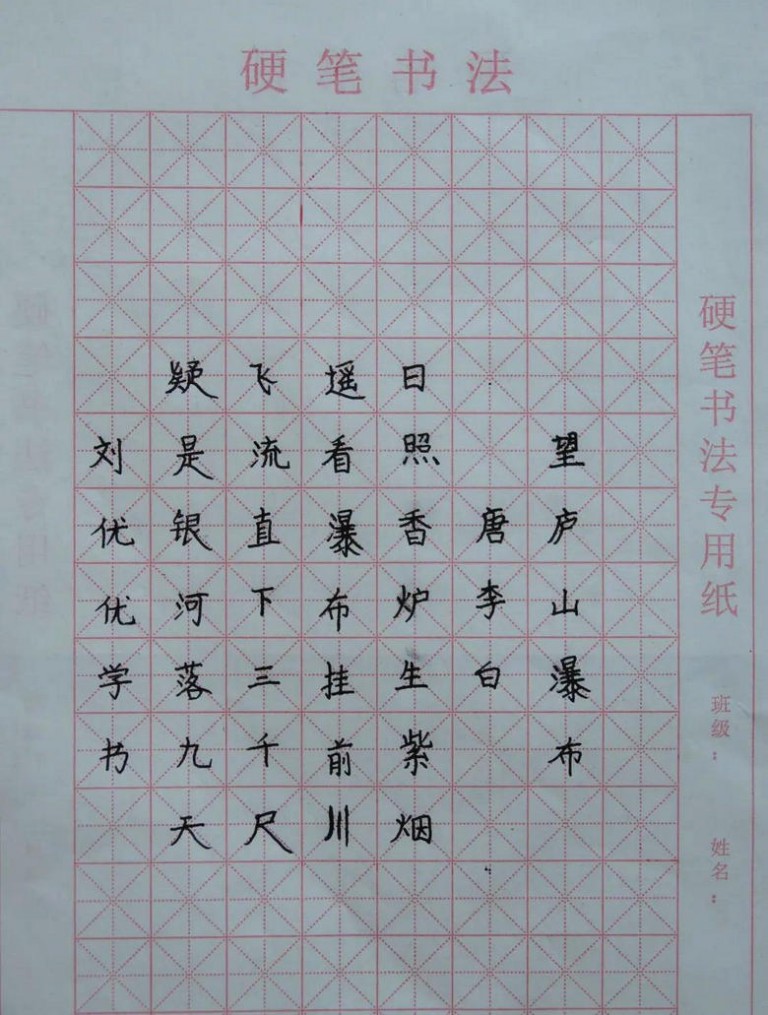 硬笔书法
硬笔书法专用纸
班级：
姓名：
望庐山瀑布
唐李白
日照香炉生紫烟
遥看瀑布挂前川
飞流直下三千尺
疑是银河落九天
刘优优学书